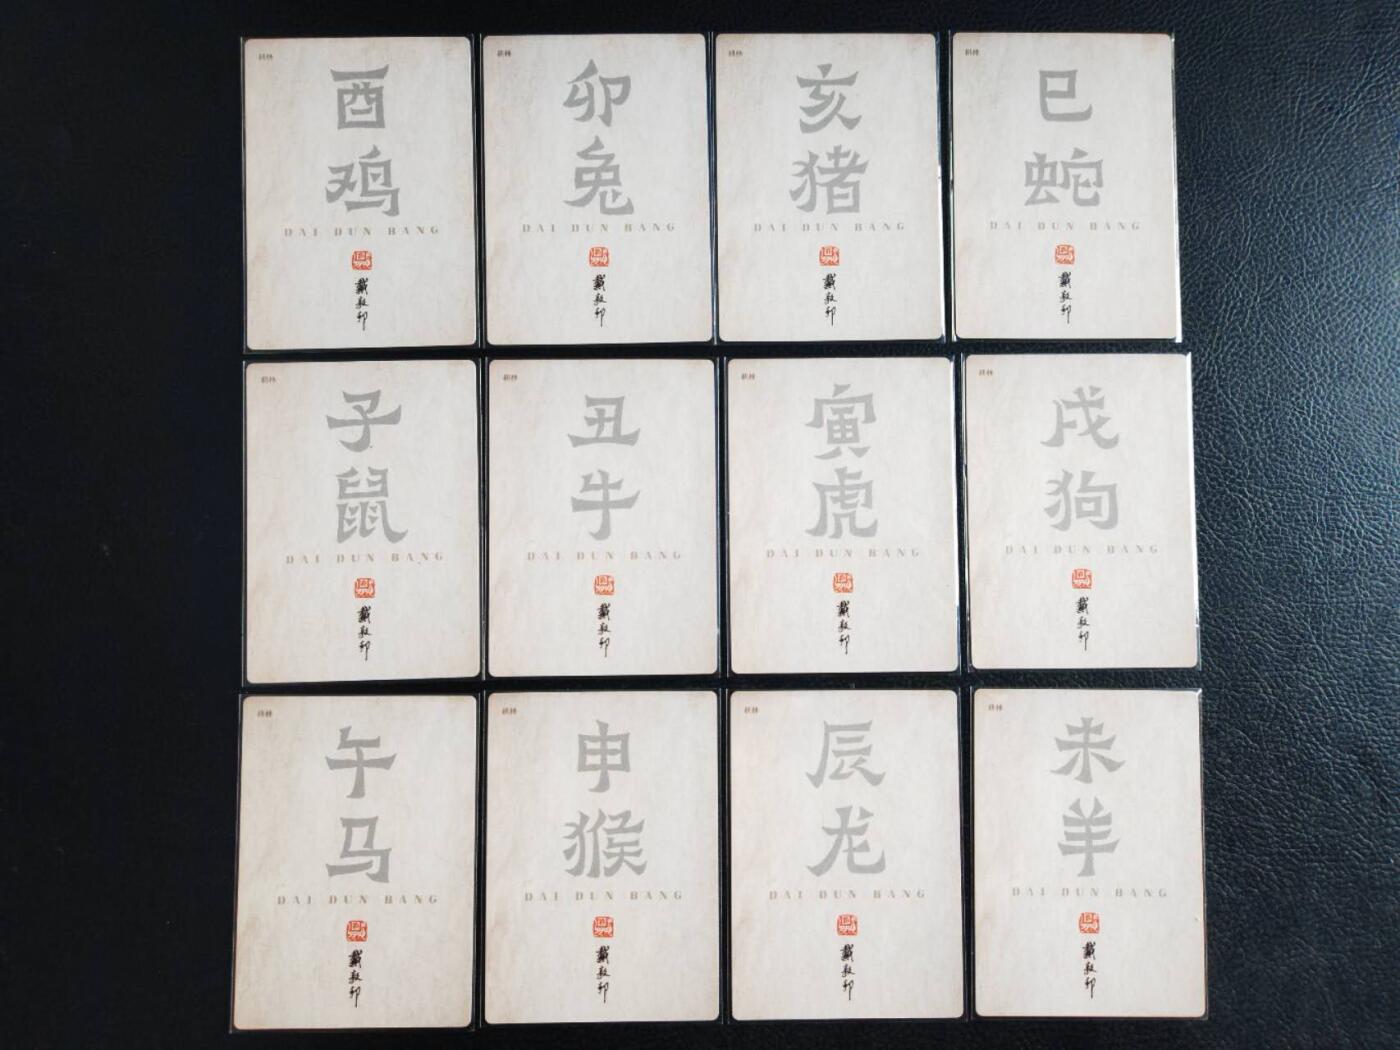 酉
鸡
DAI DUN BANG
戴敦邦
卯
兔
DAI DUN BANG
戴敦邦
亥
猪
DAI DUN BANG
戴敦邦
巳
蛇
DAI DUN BANG
戴敦邦
子
鼠
DAI DUN BANG
戴敦邦
丑
牛
DAI DUN BANG
戴敦邦
寅
虎
DAI DUN BANG
戴敦邦
戌
狗
DAI DUN BANG
戴敦邦
午
马
DAI DUN BANG
戴敦邦
申
猴
DAI DUN BANG
戴敦邦
辰
龙
DAI DUN BANG
戴敦邦
未
羊
DAI DUN BANG
戴敦邦